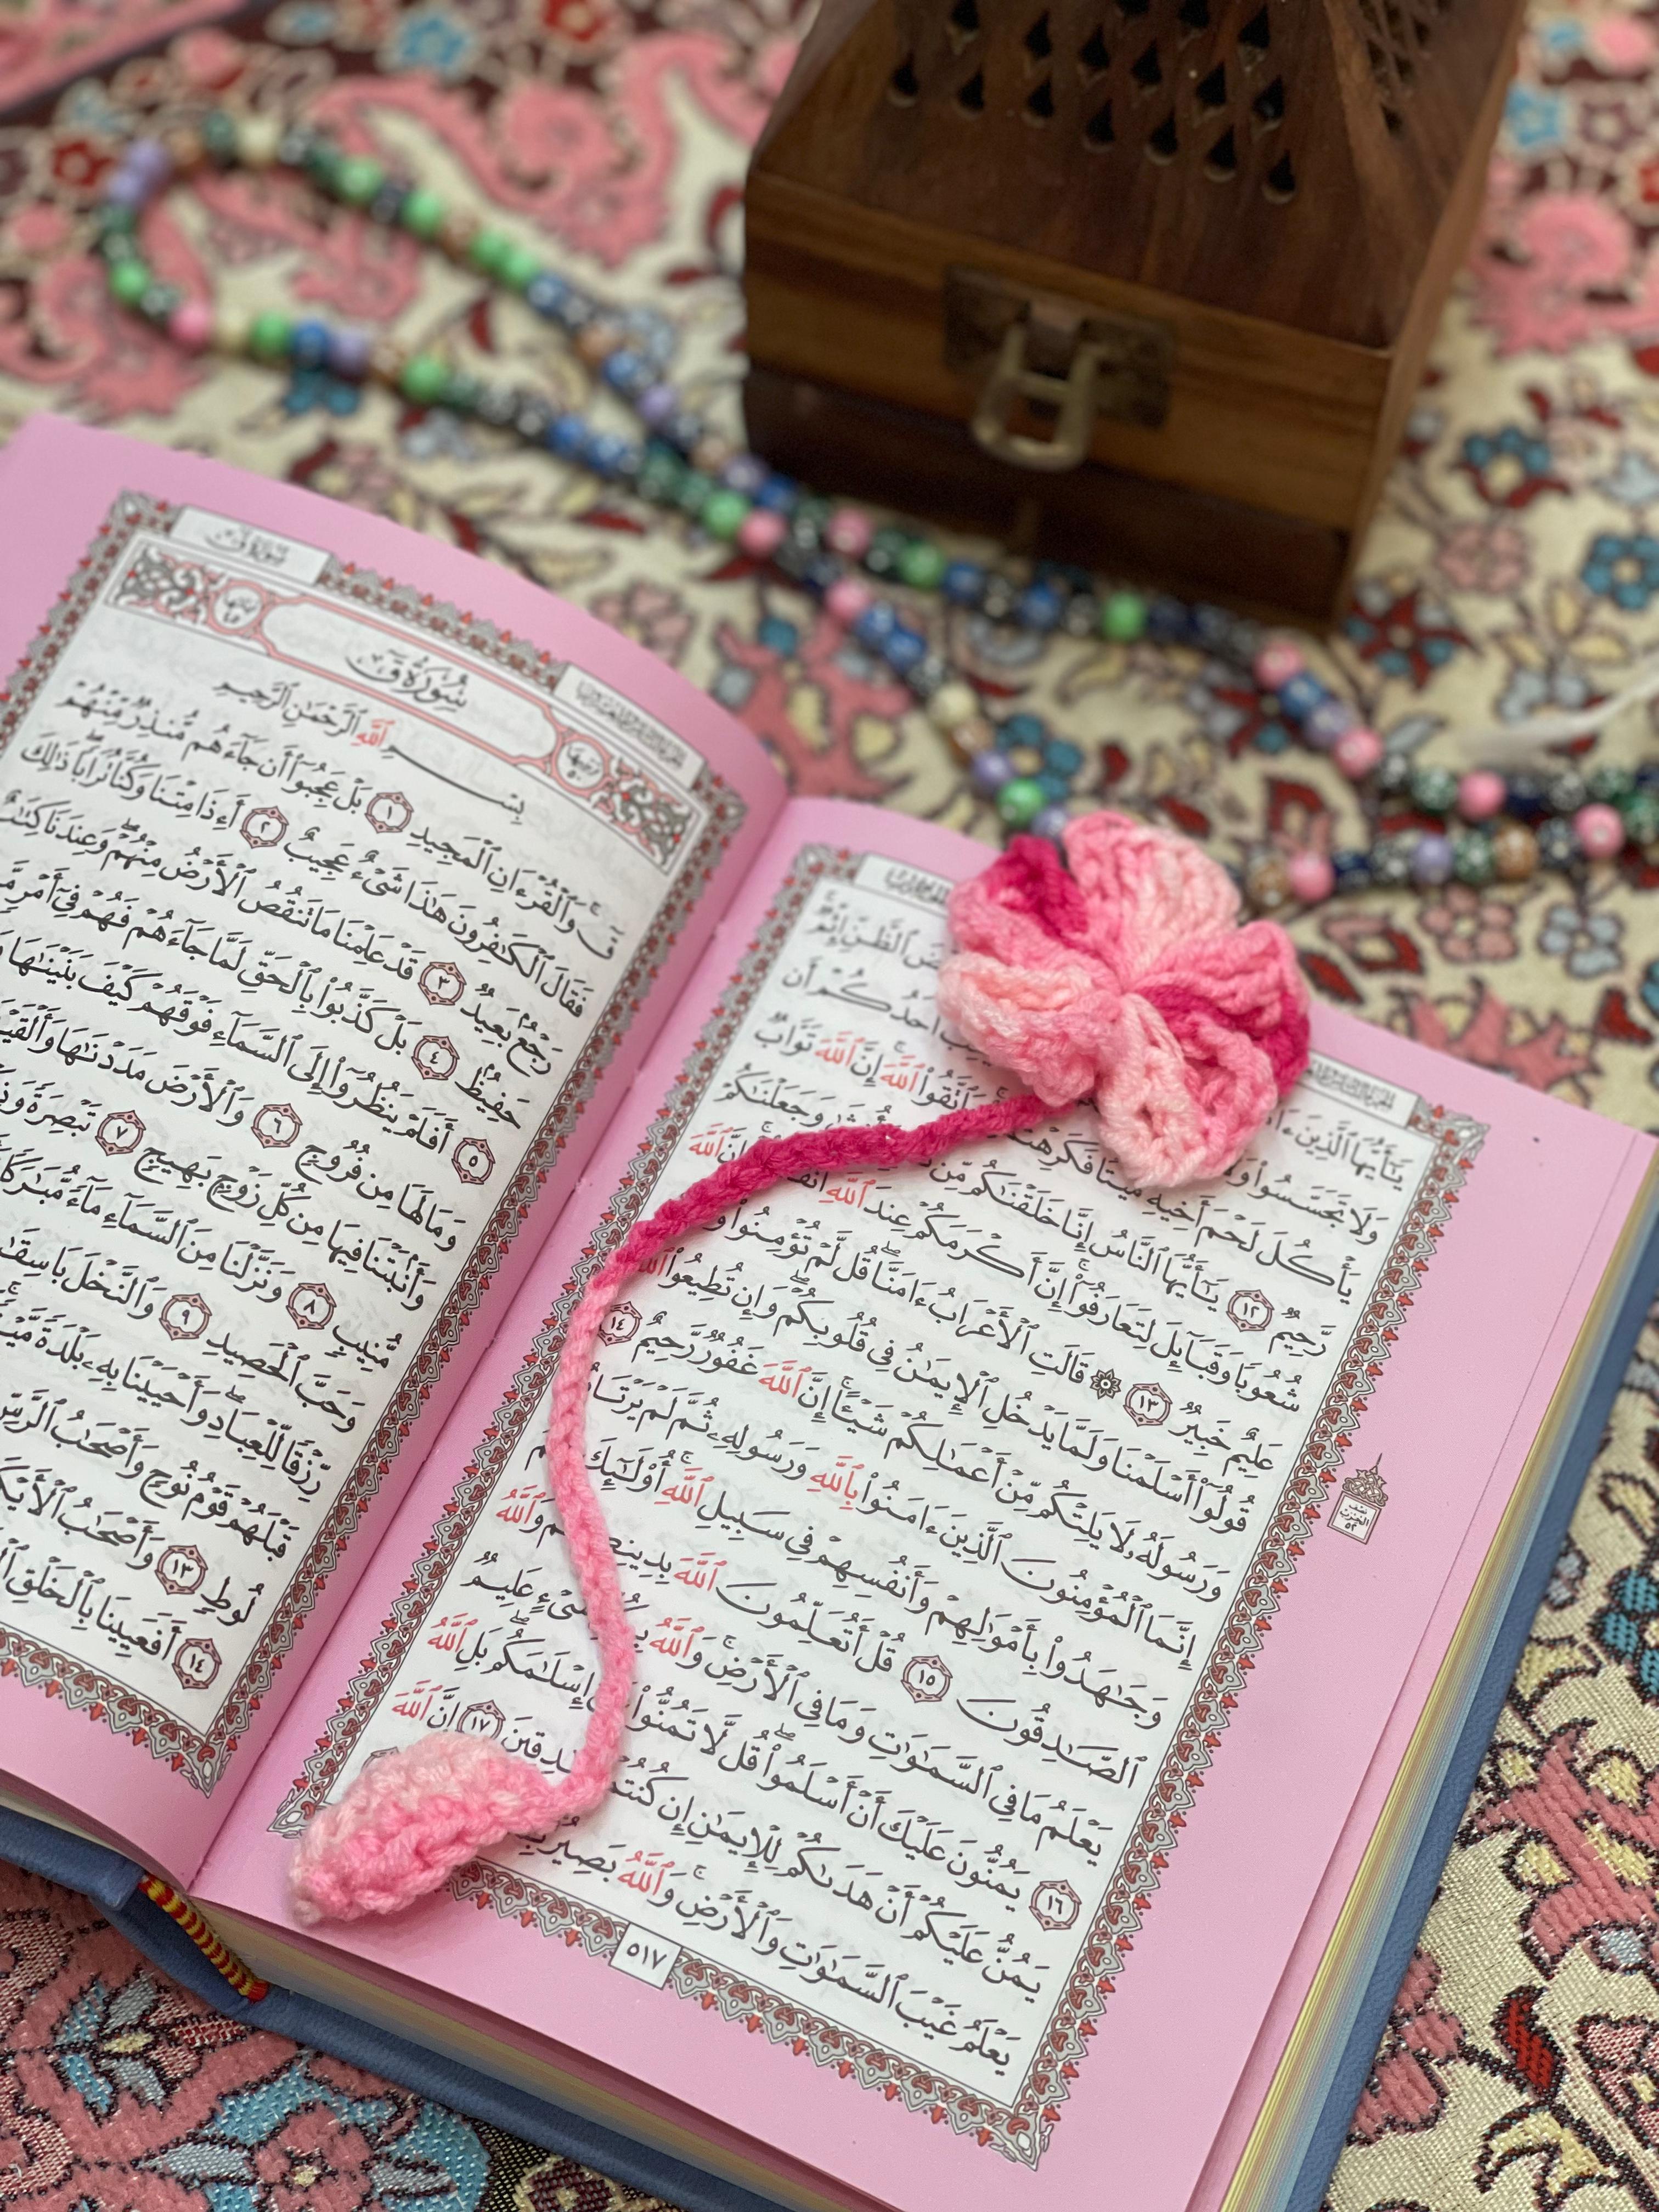 يَٰٓأَيُّهَا ٱلَّذِينَ ٱلظَّنِّ إِثْمٌ
وَلَا تَجَسَّسُوا۟ أَحَدُكُمْ أَن
يَأْكُلَ لَحْمَ أَخِيهِ مَيْتًا ٱللَّهَ ۚ إِنَّ ٱللَّهَ تَوَّابٌ
رَّحِيمٌ ١٢ يَٰٓأَيُّهَا ٱلنَّاسُ إِنَّا خَلَقْنَٰكُم مِّن وَجَعَلْنَٰكُمْ
شُعُوبًا وَقَبَآئِلَ لِتَعَارَفُوٓا۟ ۚ إِنَّ أَكْرَمَكُمْ عِندَ ٱللَّهِ إِنَّ ٱللَّهَ
عَلِيمٌ خَبِيرٌ ١٣ ۞ قَالَتِ ٱلْأَعْرَابُ ءَامَنَّا ۖ قُل لَّمْ تُؤْمِنُوا۟
قُولُوٓا۟ أَسْلَمْنَا وَلَمَّا يَدْخُلِ ٱلْإِيمَٰنُ فِى قُلُوبِكُمْ ۖ وَإِن تُطِيعُوا۟ ٱللَّهَ
وَرَسُولَهُۥ لَا يَلِتْكُم مِّنْ أَعْمَٰلِكُمْ شَيْـًٔا ۚ إِنَّ ٱللَّهَ غَفُورٌ رَّحِيمٌ ١٤
إِنَّمَا ٱلْمُؤْمِنُونَ ٱلَّذِينَ ءَامَنُوا۟ بِٱللَّهِ وَرَسُولِهِۦ ثُمَّ لَمْ
وَجَٰهَدُوا۟ بِأَمْوَٰلِهِمْ وَأَنفُسِهِمْ فِى سَبِيلِ ٱللَّهِ ۚ أُو۟لَٰٓئِكَ
ٱلصَّٰدِقُونَ ١٥ قُلْ أَتُعَلِّمُونَ ٱللَّهَ وَٱللَّهُ
يَعْلَمُ مَا فِى ٱلسَّمَٰوَٰتِ وَمَا فِى ٱلْأَرْضِ ۚ وَٱللَّهُ شَىْءٍ عَلِيمٌ
١٦ يَمُنُّونَ عَلَيْكَ أَنْ أَسْلَمُوا۟ ۖ قُل لَّا تَمُنُّوا۟ إِسْلَٰمَكُم ۖ بَلِ ٱللَّهُ
يَمُنُّ عَلَيْكُمْ أَنْ هَدَىٰكُمْ لِلْإِيمَٰنِ إِن كُنتُمْ ١٧ إِنَّ ٱللَّهَ
يَعْلَمُ غَيْبَ ٱلسَّمَٰوَٰتِ وَٱلْأَرْضِ ۚ وَٱللَّهُ بَصِيرٌۢ
نصف الحزب ٥٢
٥١٧
سورة ق
ترتيبها ٥٠ سُورَةُ قٓ آياتها ٤٥
بِسْمِ ٱللَّهِ ٱلرَّحْمَٰنِ ٱلرَّحِيمِ
قٓ ۚ وَٱلْقُرْءَانِ ٱلْمَجِيدِ ١ بَلْ عَجِبُوٓا۟ أَن جَآءَهُم مُّنذِرٌ مِّنْهُمْ
فَقَالَ ٱلْكَٰفِرُونَ هَٰذَا شَىْءٌ عَجِيبٌ ٢ أَءِذَا مِتْنَا وَكُنَّا تُرَابًا ۖ ذَٰلِكَ
رَجْعٌۢ بَعِيدٌ ٣ قَدْ عَلِمْنَا مَا تَنقُصُ ٱلْأَرْضُ مِنْهُمْ ۖ وَعِندَنَا كِتَٰبٌ
حَفِيظٌۢ ٤ بَلْ كَذَّبُوا۟ بِٱلْحَقِّ لَمَّا جَآءَهُمْ فَهُمْ فِىٓ أَمْرٍ
٥ أَفَلَمْ يَنظُرُوٓا۟ إِلَى ٱلسَّمَآءِ فَوْقَهُمْ كَيْفَ بَنَيْنَٰهَا
وَمَا لَهَا مِن فُرُوجٍ ٦ وَٱلْأَرْضَ مَدَدْنَٰهَا
وَأَنۢبَتْنَا فِيهَا مِن كُلِّ زَوْجٍۭ بَهِيجٍ ٧ تَبْصِرَةً
مُّنِيبٍ ٨ وَنَزَّلْنَا مِنَ ٱلسَّمَآءِ مَآءً
وَحَبَّ ٱلْحَصِيدِ ٩ وَٱلنَّخْلَ بَاسِقَٰتٍ
رِّزْقًا لِّلْعِبَادِ ۖ وَأَحْيَيْنَا بِهِۦ بَلْدَةً
قَبْلَهُمْ قَوْمُ نُوحٍ وَأَصْحَٰبُ ٱلرَّسِّ
لُوطٍ ١٣ وَأَصْحَٰبُ ٱلْأَيْكَةِ
١٤ أَفَعَيِينَا بِٱلْخَلْقِ